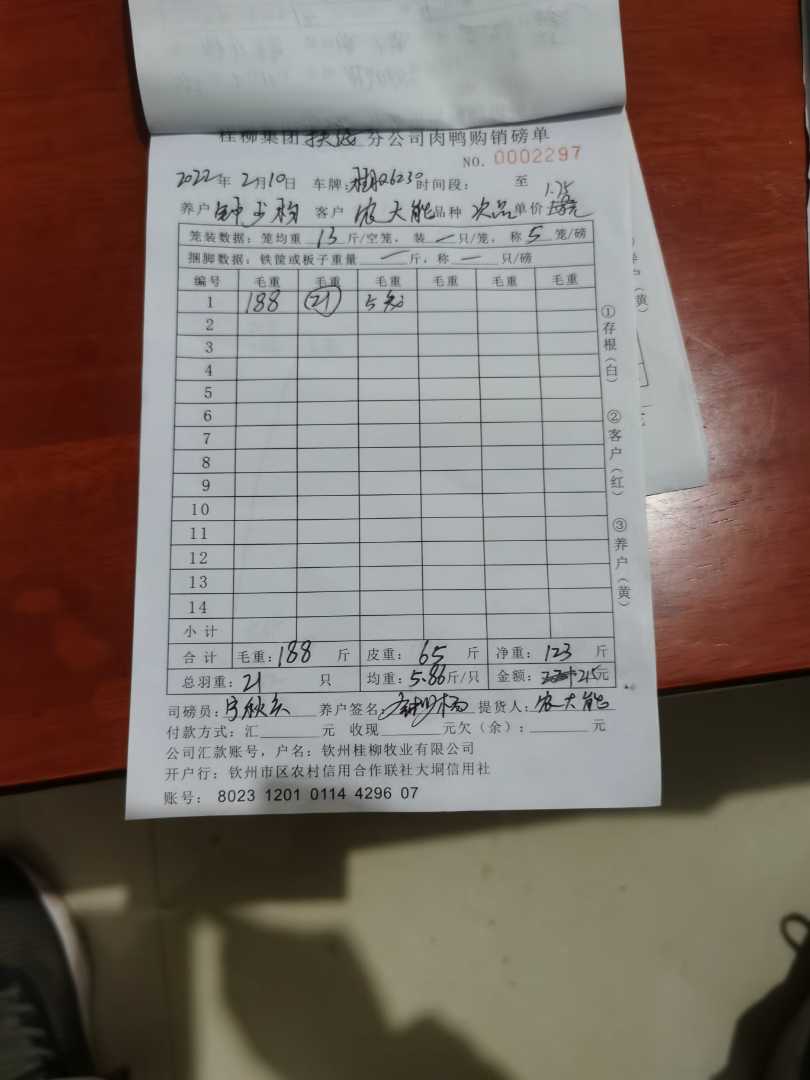 桂柳集团扶绥分公司肉鸭购销磅单
NO. 0002297
2022年2月10日 车牌:桂R26230时间段: 至
1.75
养户 钟少梅 客户 农大能 品种 次品 单价
笼装数据: 笼均重 13 斤/空笼, 装 一 只/笼, 称 5 笼/磅
捆脚数据: 铁筐或板子重量 一 斤, 称 一 只/磅
编号 毛重 毛重 毛重 毛重 毛重 毛重
1 188 (21) 5笼
2
3
4
5
6
7
8
9
10
11
12
13
14
小计
合计 毛重: 188 斤 皮重: 65 斤 净重: 123 斤
总羽重: 21 只 均重: 5.86斤/只 金额: 215元
司磅员: 养户签名: 提货人: 农大能
付款方式: 汇 元 收现 元欠(余): 元
公司汇款账号, 户名: 钦州桂柳牧业有限公司
开户行: 钦州市区农村信用合作联社大垌信用社
账号: 8023 1201 0114 4296 07
①存根(白) ②客户(红) ③养户(黄)